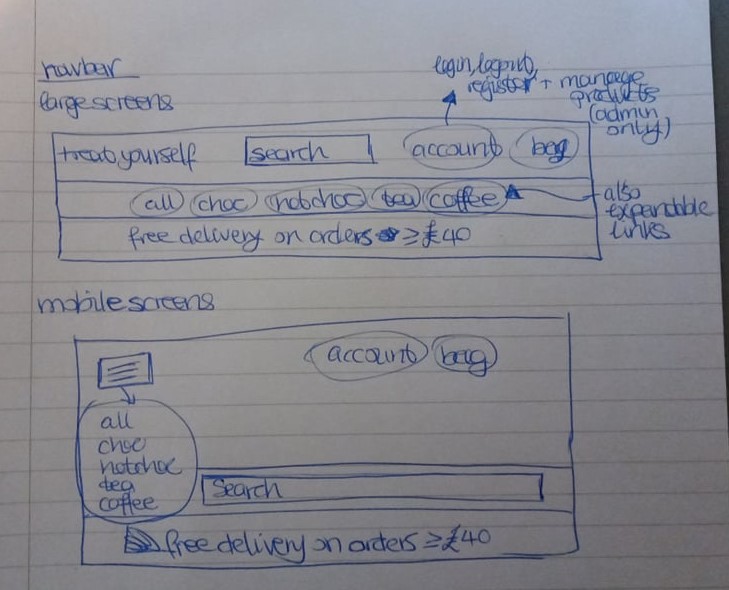 navbar
large screens
login, logout,
register + manage
products
(admin
only)
treat yourself search account bag
all choc hotchoc tea coffee
also
expandable
links
free delivery on orders ≥ £40
mobile screens
account bag
all
choc
hotchoc
tea
coffee
Search
free delivery on orders ≥ £40